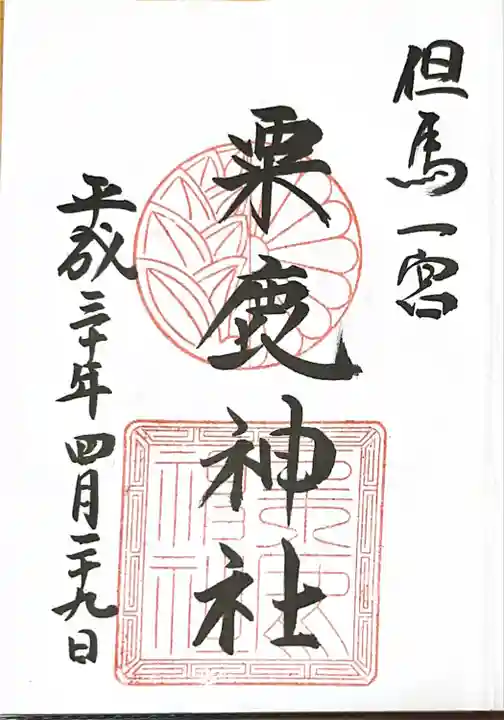 但馬一宮
粟鹿神社
平成三十年四月二十九日
粟鹿神社